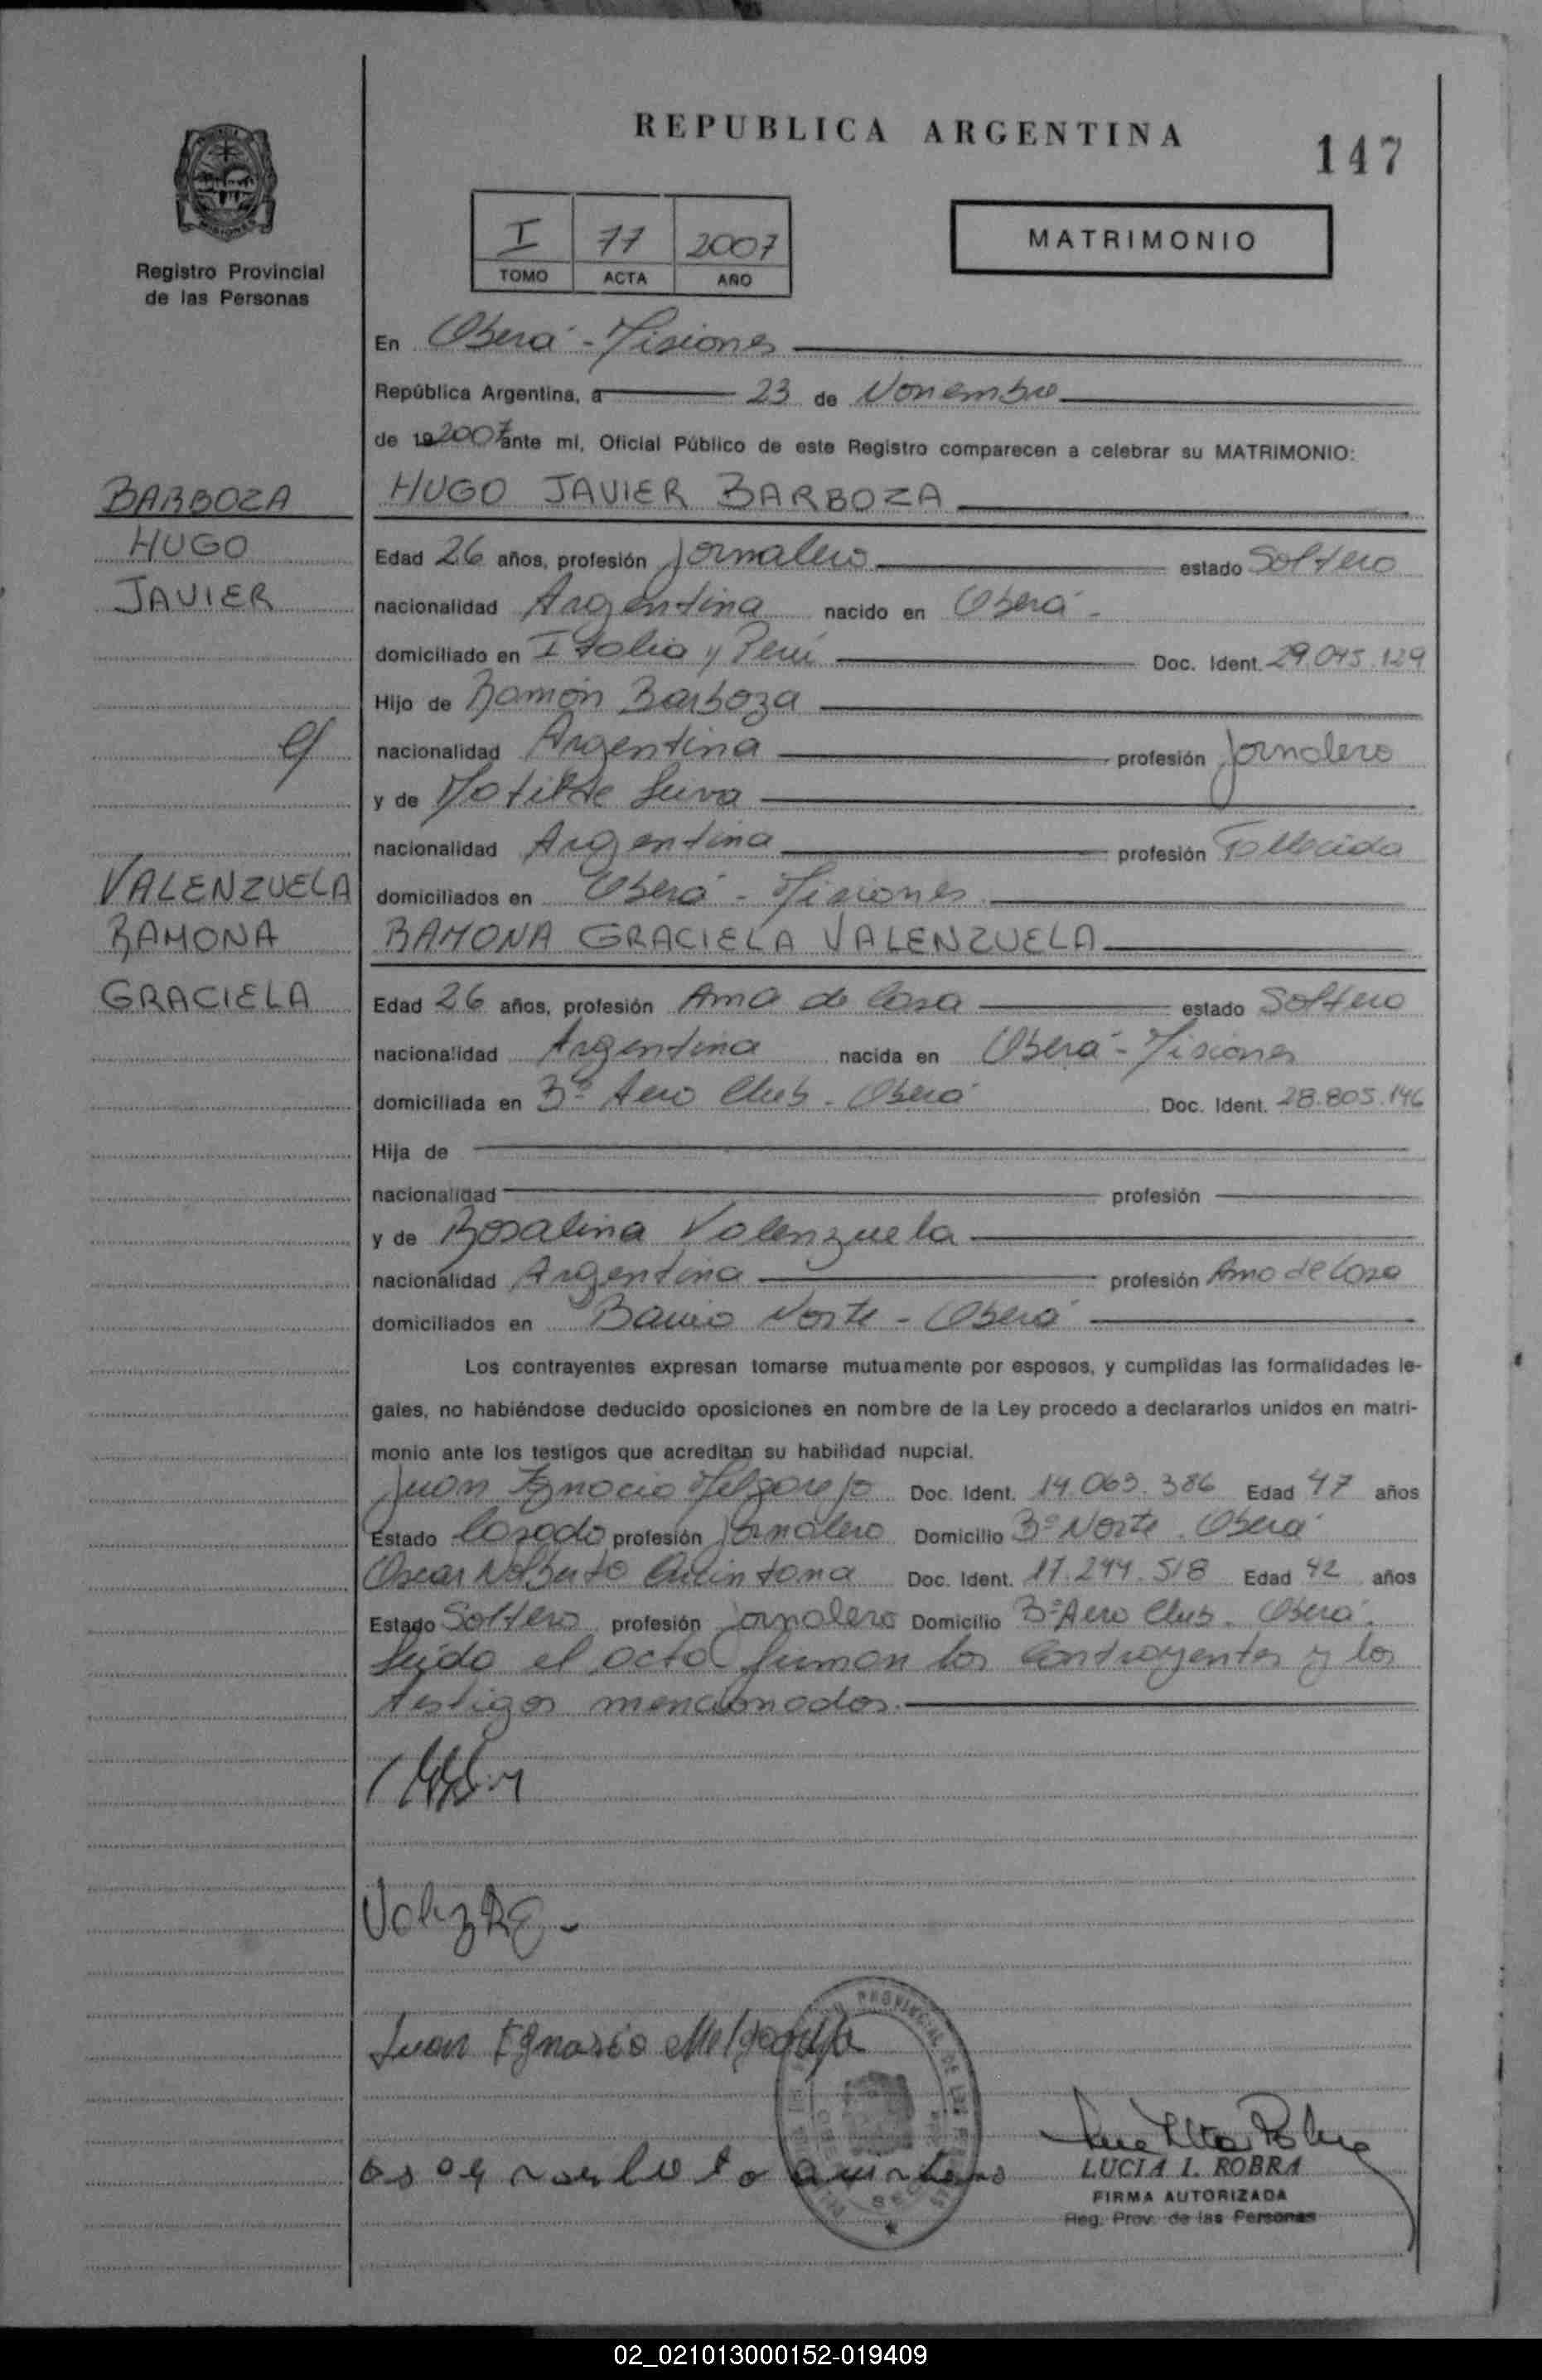 REPUBLICA ARGENTINA
147
Registro Provincial
de las Personas
I 77 2007
TOMO ACTA AÑO
MATRIMONIO
En Oberá - Misiones
República Argentina, a 23 de Noviembre
de 192007 ante mí, Oficial Público de este Registro comparecen a celebrar su MATRIMONIO:
BARBOZA
HUGO
JAVIER
HUGO JAVIER BARBOZA
Edad 26 años, profesión Jornalero estado Soltero
nacionalidad Argentina nacido en Oberá -
domiciliado en Italia y Perú Doc. Ident. 29.045.129
Hijo de Ramón Barboza
nacionalidad Argentina profesión Jornalero
y de Matilde Leiva
nacionalidad Argentina profesión Fallecida
domiciliados en Oberá - Misiones
y
VALENZUELA
RAMONA
GRACIELA
RAMONA GRACIELA VALENZUELA
Edad 26 años, profesión Ama de Casa estado Soltera
nacionalidad Argentina nacida en Oberá - Misiones
domiciliada en Bº Aero Club - Oberá Doc. Ident. 28.805.146
Hija de
nacionalidad profesión
y de Rosalina Valenzuela
nacionalidad Argentina profesión Ama de Casa
domiciliados en Barrio Norte - Oberá
Los contrayentes expresan tomarse mutuamente por esposos, y cumplidas las formalidades le-
gales, no habiéndose deducido oposiciones en nombre de la Ley procedo a declararlos unidos en matri-
monio ante los testigos que acreditan su habilidad nupcial.
Juan Ignacio Melgarejo Doc. Ident. 14.063.386 Edad 47 años
Estado Casado profesión Jornalero Domicilio Bº Norte. Oberá
Oscar Nolberto Quintana Doc. Ident. 17.244.518 Edad 42 años
Estado Soltero profesión Jornalero Domicilio Bº Aero Club - Oberá.
Leída el acta firman los contrayentes y los
testigos mencionados.
Juan Ignasio Melgarejo
LUCIA I. ROBRA
FIRMA AUTORIZADA
Reg. Prov. de las Personas
02_021013000152-019409